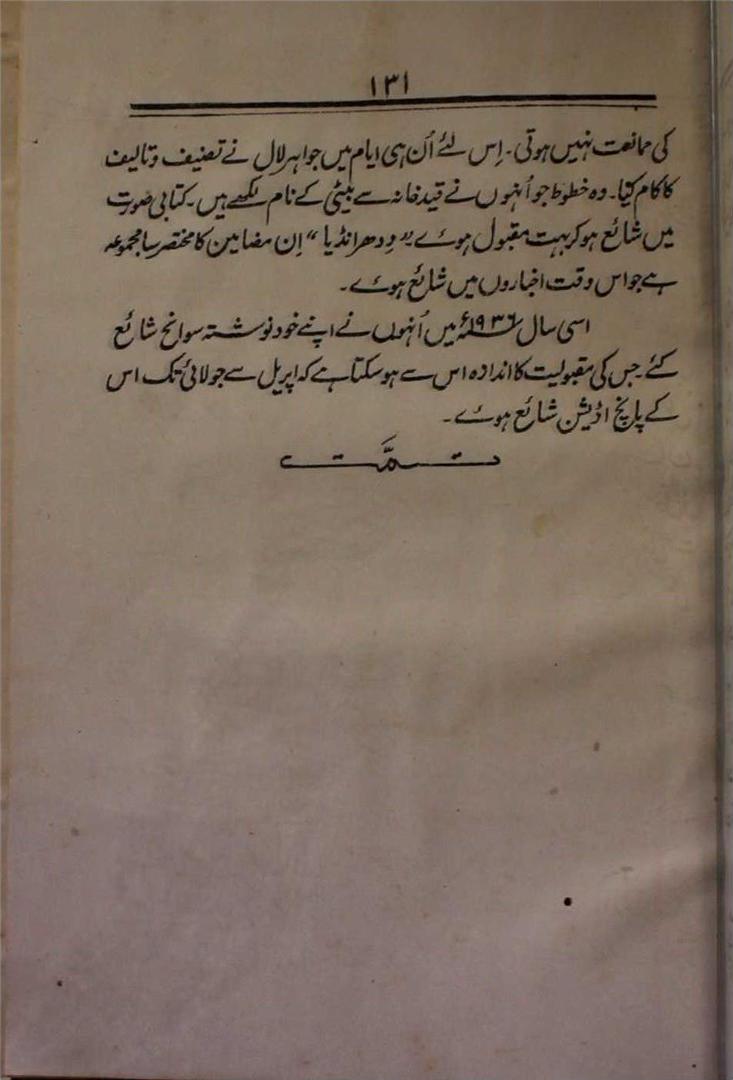 ۱۳۱
کی ممانعت نہیں ہوتی۔ اِس لئے اُن ہی ایام میں جواہر لال نے تصنیف و تالیف
کا کام کیا۔ وہ خطوط جو اُنہوں نے قید خانہ سے بیٹی کے نام لکھے ہیں۔ کتابی صورت
میں شائع ہو کر بہت مقبول ہوئے " ودھر انڈیا " اِن مضامین کا مختصر سا مجموعہ
ہے جو اس وقت اخباروں میں شائع ہوئے۔
اسی سال ۱۹۳۶ء میں اُنہوں نے اپنے خود نوشتہ سوانح شائع
کئے۔ جس کی مقبولیت کا اندازہ اس سے ہو سکتا ہے کہ اپریل سے جولائی تک اس
کے پانچ اڈیشن شائع ہوئے۔
تمَّت